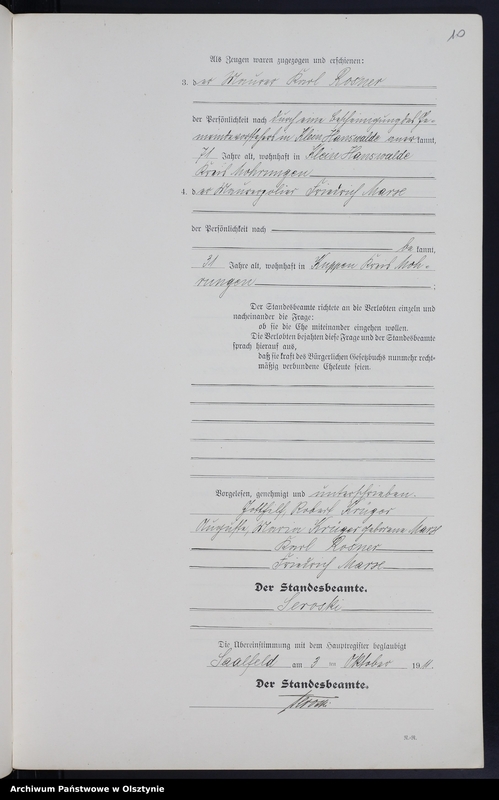 10
Als Zeugen waren zugezogen und erschienen:
3. der Maurer Karl Rosner
der Persönlichkeit nach durch eine Bescheinigung des Ge-
meindevorstehers in Klein Hanswalde aner kannt,
71 Jahre alt, wohnhaft in Klein Hanswalde
Kreis Mohrungen
4. der Maurerpolier Friedrich Marx
der Persönlichkeit nach
be kannt,
31 Jahre alt, wohnhaft in Kuppen Kreis Moh-
rungen ;
Der Standesbeamte richtete an die Verlobten einzeln und
nacheinander die Frage:
ob sie die Ehe miteinander eingehen wollen.
Die Verlobten bejahten diese Frage und der Standesbeamte
sprach hierauf aus,
daß sie kraft des Bürgerlichen Gesetzbuchs nunmehr recht-
mäßig verbundene Eheleute seien.
Vorgelesen, genehmigt und unterschrieben.
Gotthilf Robert Krüger
Auguste, Maria Krüger geborene Marx
Karl Rosner
Friedrich Marx
Der Standesbeamte.
Seroski
Die Übereinstimmung mit dem Hauptregister beglaubigt
Saalfeld am 3 ten Oktober 19
Der Standesbeamte.
A.-R.
Archiwum Państwowe w Olsztynie